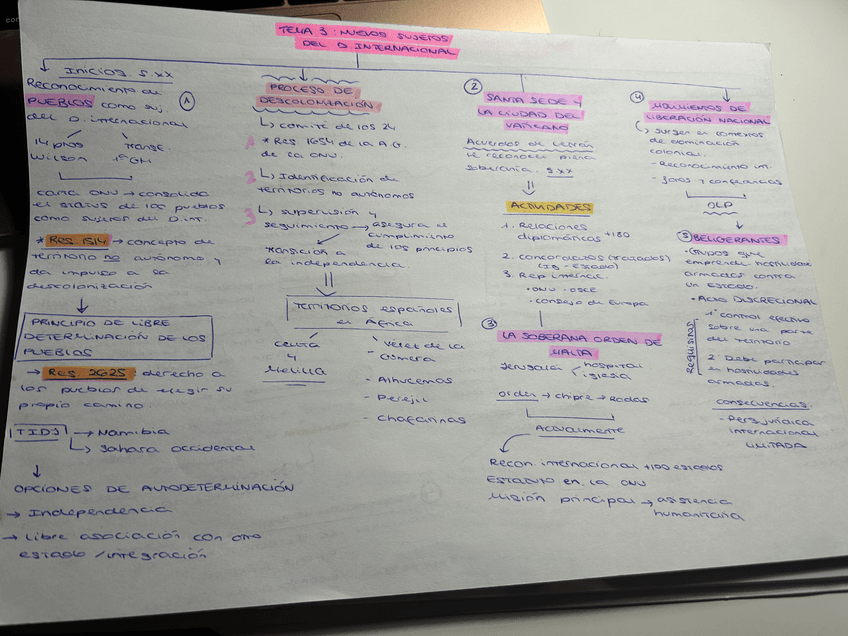 TEMA 3: NUEVOS SUJETOS
DEL D INTERNACIONAL
Inicios S.XX
Reconocimiento de
PUEBLOS como suj.
del D. internacional
1
14 ptos
Wilson
Transf.
1ª GM
carta ONU → consolida
el status de los pueblos
como sujetos del D.int.
* Res 1514 → concepto de
territorio no autónomo y
da impulso a la
descolonización
PRINCIPIO DE LIBRE
DETERMINACIÓN DE LOS
PUEBLOS
→ Res 2625 derecho a
los pueblos de elegir su
propio camino.
TIDJ → Namibia
Sahara occidental
OPCIONES DE AUTODETERMINACIÓN
→ Independencia
→ Libre asociación con otro
estado / integración
PROCESO DE
DESCOLONIZACIÓN
comité de los 24
* Res 1654 de la A.G.
de la ONU.
Identificación de
territorios no autónomos
3 supervisión y
seguimiento → asegura el
cumplimiento
de los principios
Transición a
la independencia.
TERRITORIOS españoles
en África
ceuta
y
Melilla
\ Velez de la
Gomera
- Alhucemas
- Perejil
- Chafarinas
2
SANTA SEDE Y
LA CIUDAD DEL
VATICANO
Acuerdos de Letrán
se reconoce plena
soberanía. S.XX
ACTIVIDADES
1. Relaciones
diplomáticas +180
2. concordatos (tratados)
(IG - ESTADO)
3. Rep internac.
- ONU - OSCE
- consejo de Europa
3
LA SOBERANA ORDEN DE
MALTA
Jerusalén hospital
iglesia
orden → chipre → Rodas
Actualmente
Recon. internacional +100 estados
ESTATUTO en la ONU
Misión principal → asistencia
humanitaria
4
MOVIMIENTOS DE
LIBERACIÓN NACIONAL
surgen en contextos
de dominación
colonial.
- Reconocimiento int.
- foros y conferencias
OLP
5 BELIGERANTES
• Grupos que
emprende hostilidades
armadas contra
un ESTADO.
• Acto DISCRECIONAL
Requisitos
1º control efectivo
sobre una parte
del territorio
2º Debe participar
en hostilidades
armadas.
consecuencias:
- Pers jurídica
internacional
LIMITADA